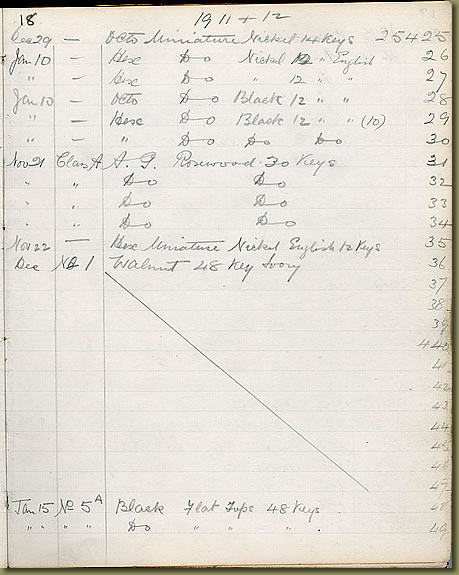 18 1911 + 12
Dec 29 — Octo Miniature Nickel 14 Keys 25425
Jan 10 — Hex Do Nickel 12 " English 26
" — Hex Do " 12 " " 27
Jan 10 — Octo Do Black 12 " " 28
— Hex Do Black 12 " " (10) 29
— " Do Do Do 30
Nov 21 Class A A. G. Rosewood 30 Keys 31
" " Do Do 32
" " Do Do 33
" " Do Do 34
Nov 22 — Hex Miniature Nickel English 12 Keys 35
Dec No 1 Walnut 48 Key Ivory 36
37
38
39
440
41
42
43
44
45
46
47
Jan 15 No 5A Black Flat Tops 48 Keys 48
" " " " Do " " " 49